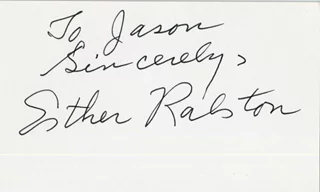 To Jason
Sincerely,
Esther Ralston